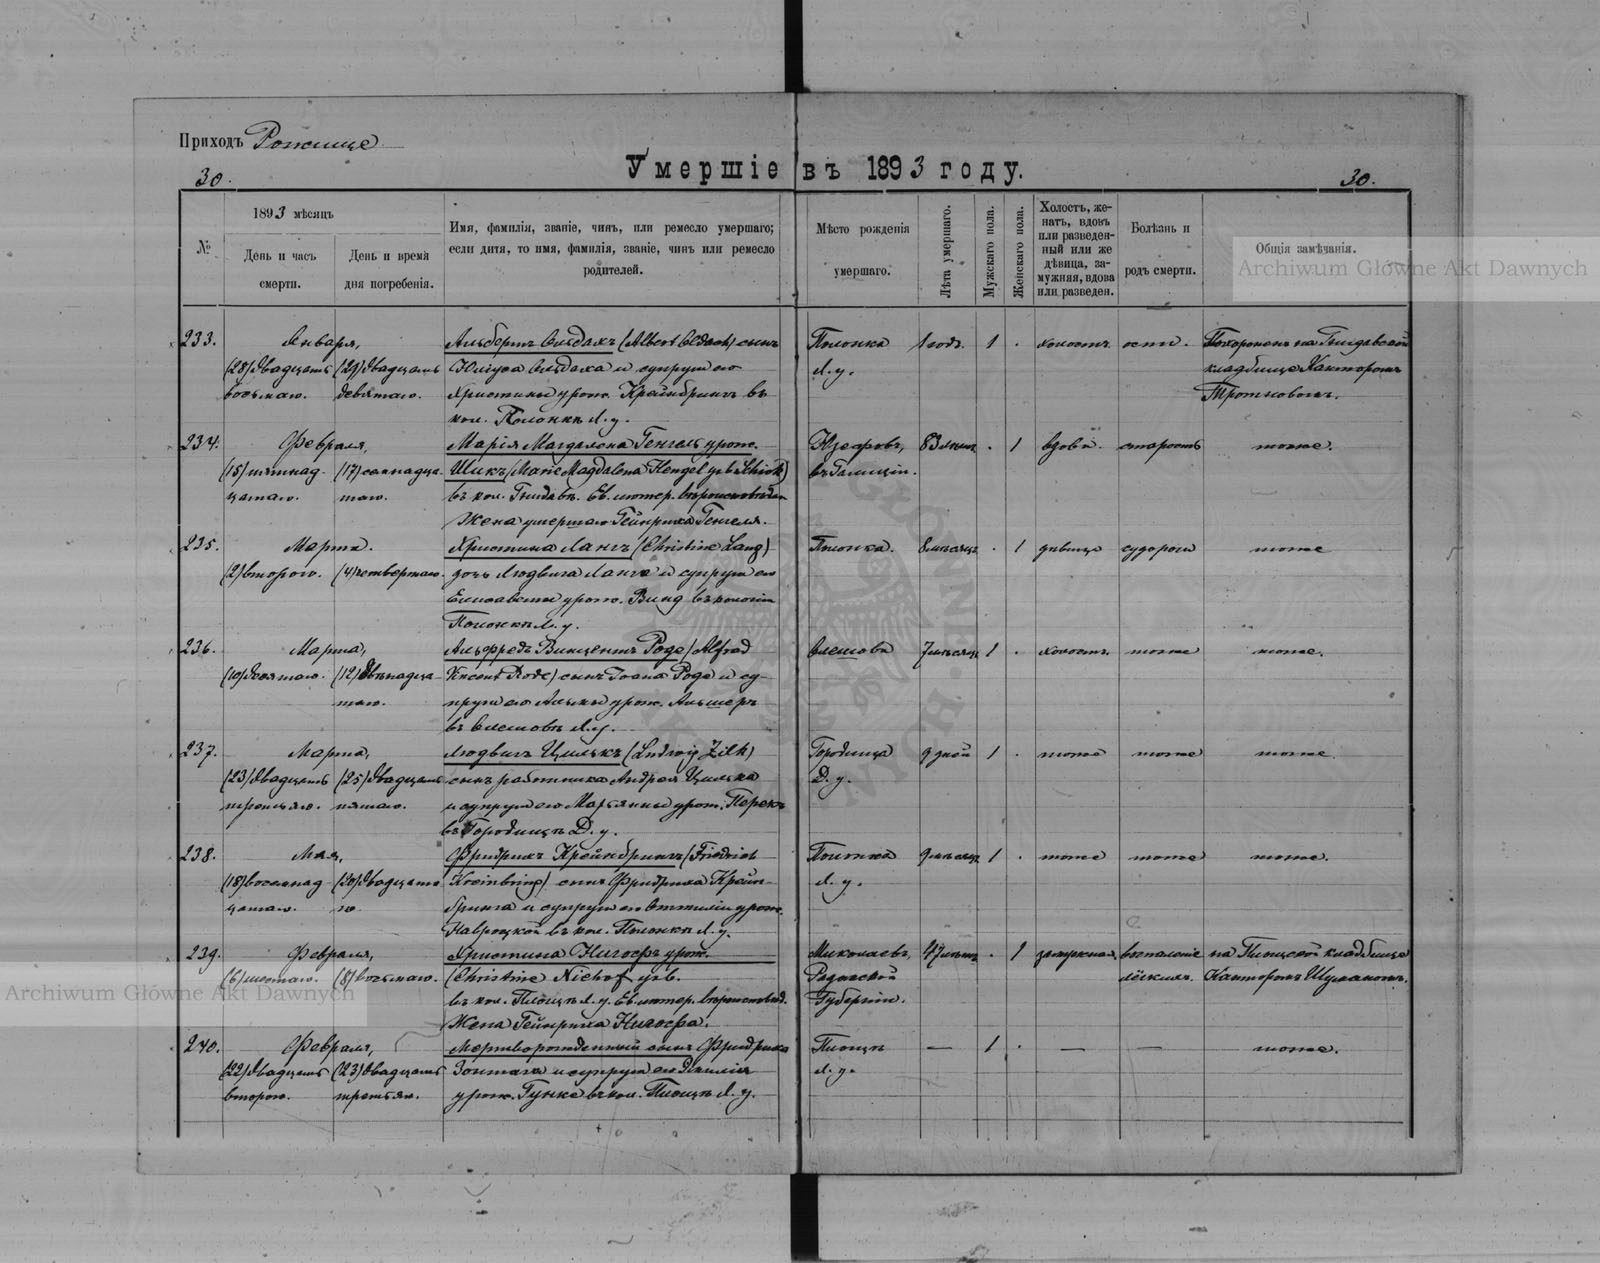 Приходъ Рожище
Умершіе въ 1893 году.
30.
30.
№
1893 мѣсяцъ
День и часъ
смерти.
День и время
дня погребенія.
Имя, фамилія, званіе, чинъ, или ремесло умершаго;
если дитя, то имя, фамилія, званіе, чинъ или ремесло
родителей.
Мѣсто рожденія
умершаго.
Лѣта умершаго.
Мужскаго пола.
Женскаго пола.
Холостъ, же-
натъ, вдовъ
или разведен-
ный или же
дѣвица, за-
мужняя, вдова
или разведен.
Болѣзнь и
родъ смерти.
Общія замѣчанія.
Archiwum Główne Akt Dawnych
233.
Января,
(28) двадцать
восьмаго.
(29) двадцать
девятаго.
Альбертъ Ольдахъ (Albert Oldach) сынъ
Юліуса Ольдаха и супруги его
Христины урож. Крейнбрингъ въ
кол. Полонкѣ Л. у.
Полонка
Л. у.
1 годъ.
1
.
холостъ
оспи.
Похороненъ на
кладбище Канторомъ
234.
Февраля,
(15) пятнад
цатаго.
(17) семнадца
таго.
Марія Магдалена Генгель урож.
Шикъ (Marie Magdalena Hengel geb. Schick)
въ кол. Ев. лютер. вѣроисповѣдан
Жена умершаго Гейнриха Генгеля.
Юзефовъ,
въ Галиціи.
83 лѣтъ
.
1
вдова.
старость
тоже.
235.
Марта.
(2) втораго.
(4) четвертаго.
Христина Лангъ (Christine Lang)
дочь Людвига Ланга и супруги его
Елисаветы урож. Винд въ колоніи
Полонкѣ Л. у.
Полонка.
8 мѣсяцъ
.
1
дѣвица
судороги
тоже
236.
Марта,
(10) десятаго.
(12) двѣнадца
таго.
Альфредъ Винцентъ Роде (Alfred
Vincent Rode) сынъ Іоана Роде и су-
пруги его урож.
въ Олешовѣ Л. у.
Олешова
7 мѣсяцъ
1
.
холостъ.
тоже
тоже.
237.
Марта,
(23) двадцать
третьяго.
(25) двадцать
пятаго.
Людвигъ Цилькъ (Ludwig Zilk)
сынъ работника Андрея Цилька
и супруги его Марьянны урож.
въ Городищѣ Д. у.
Городища
Д. у.
9 дней
1
.
тоже
тоже
тоже.
238.
Мая,
(18) восемнад
цатаго.
(20) двадцата
го.
Фридрихъ Крейнбрингъ (Friedrich
Kreinbring) сынъ Фридриха Крейн-
бринга и супруги его Оттиліи урож.
Навроцкой въ кол. Полонкѣ Л. у.
Полонка
Л. у.
9 мѣсяцъ
1
.
тоже
тоже
тоже.
239.
Февраля,
(6) шестаго.
(8) восьмаго.
Христина Нигофъ урож.
(Christine Niehof geb.
въ кол. Л. у. Ев. лютер. вѣроисповѣд.
Жена Гейнриха Нигофа.
Миколаевъ,
Радомской
Губерніи.
47 лѣтъ
.
1
замужняя,
воспаленіе
лёгкихъ.
на кладбище
Канторомъ Шумакомъ.
Archiwum Główne Akt Dawnych
240.
Февраля,
(22) двадцать
втораго.
(23) двадцать
третьяго.
Мертворожденный сынъ Фридриха
и супруги его
урож. въ кол. Л. у.
Л. у.
—
1
.
—
—
тоже.